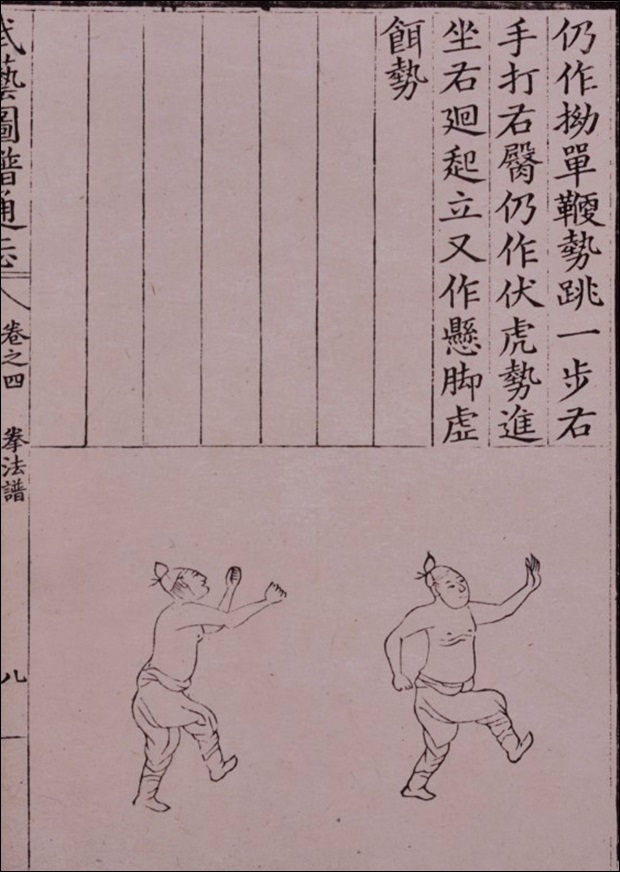 仍作拗單鞭勢跳一步右
手打右臀仍作伏虎勢進
坐右廻起立又作懸脚虛
餌勢
武藝圖譜通志
卷之四
拳法譜
八